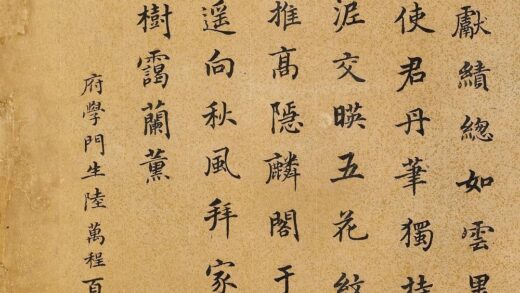 獻績總如雲
使君丹筆獨
泥交暎五花紋
推高隱麟閣于
遥向秋風拜家
樹靄蘭薰
府學門生陸萬程百